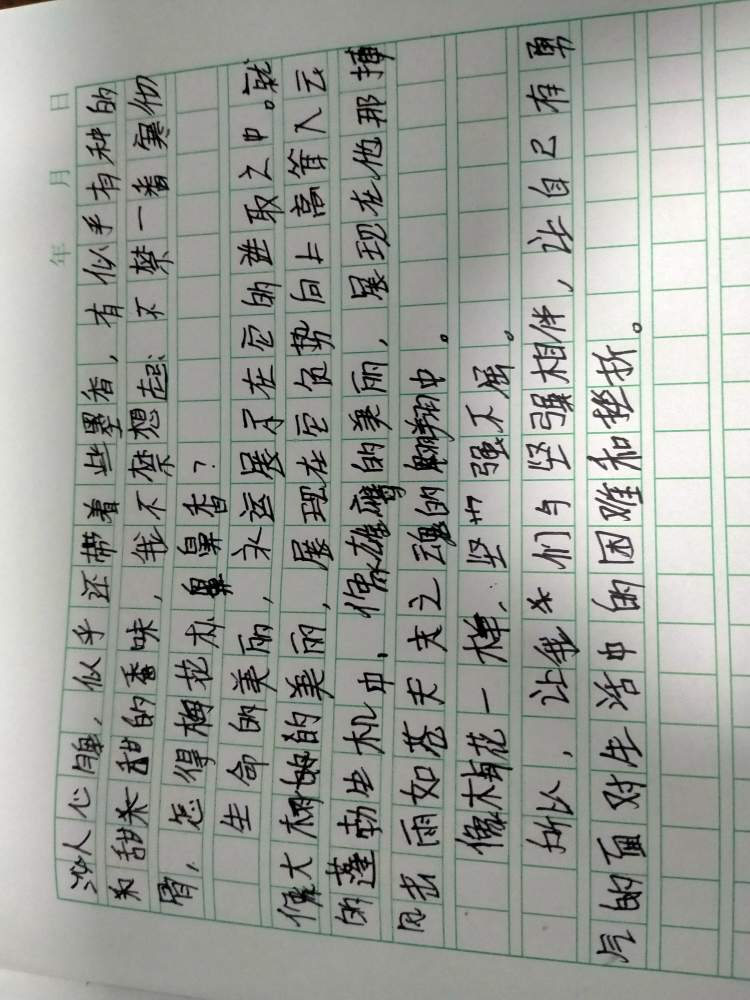 年 月 日
沁人心脾，似乎还带着些墨香，有似乎有种的
和甜的香味，我不禁想起：不禁一番寒彻
骨，怎得梅花朴鼻香？
生命的美丽，永远展在它的进取之中。就
像大树的美丽，展现在它负势向上高耸入云
的蓬勃生机中，像雄鹰的美丽，展现在他那搏
风击雨如苍天之魂的翱翔中。
像梅花一样，坚强不屈。
所以，让我们与坚强相伴，让自己有勇
气的面对生活中的困难和挫折。